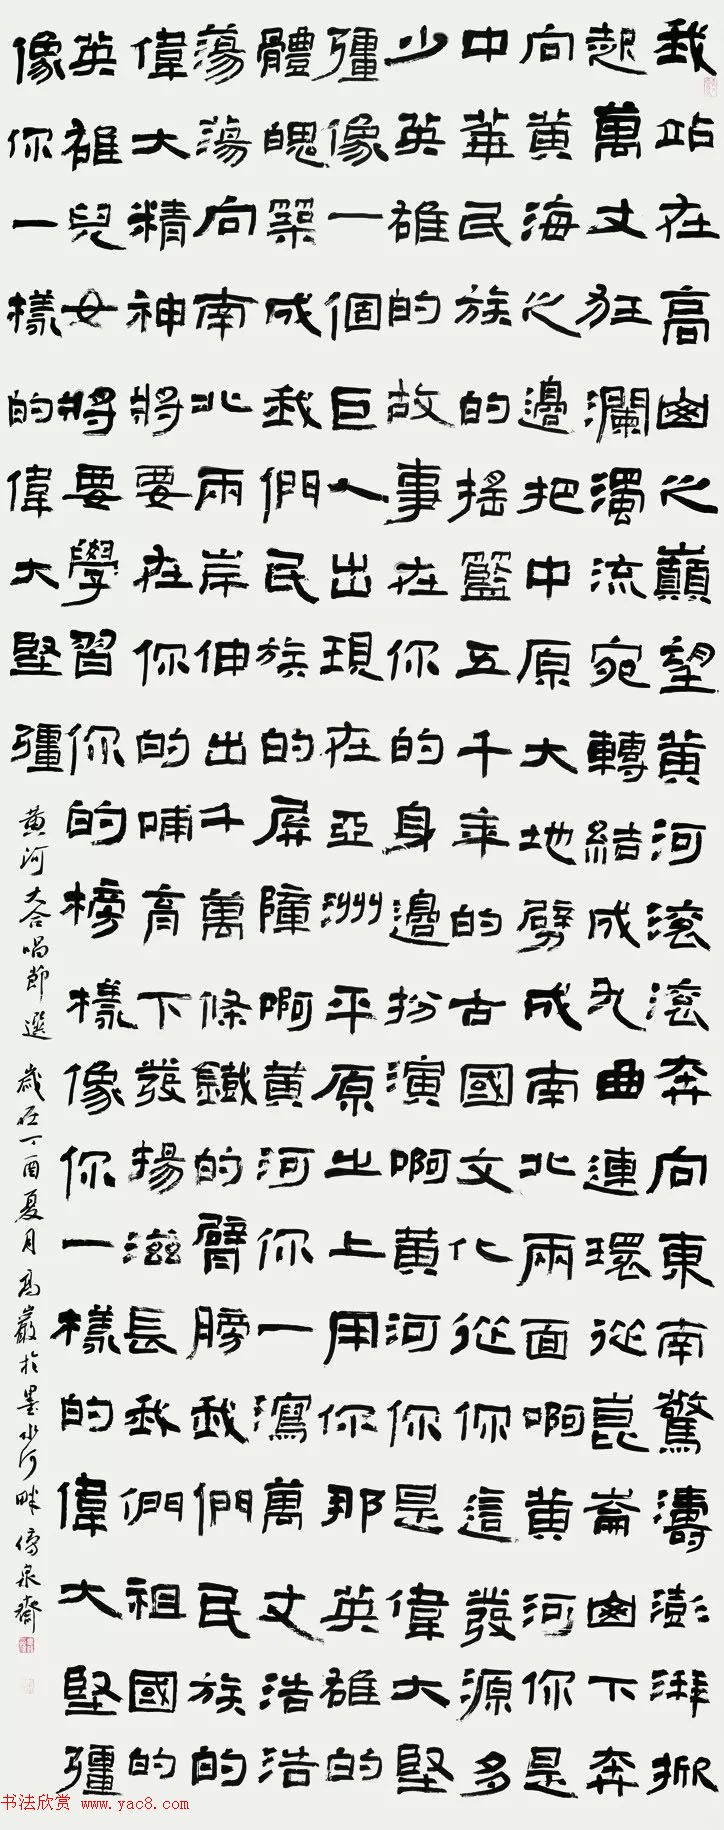 我站在高山之巔望黃河滾滾奔向東南驚濤澎湃掀
起萬丈狂瀾濁流宛轉結成九曲連環從崑崙山下奔
向黃海之邊把中原大地劈成南北兩面啊黃河你是
中華民族的搖籃五千年的古國文化從你這發源多
少英雄的故事在你的身邊扮演啊黃河你是偉大堅
彊像一個巨人出現在亞洲平原之上用你那英雄的
體魄築成我們民族的屏障啊黃河你一瀉萬丈浩浩
蕩蕩向南北兩岸伸出千萬條鐵的臂膀我們民族的
偉大精神將要在你的哺育下發揚滋長我們祖國的
英雄兒女將要學習你的榜樣像你一樣的偉大堅彊
像你一樣的偉大堅彊
黃河大合唱節選 歲在丁酉夏月高巖於墨水河畔泉齋
书法欣赏 www.yac8.com